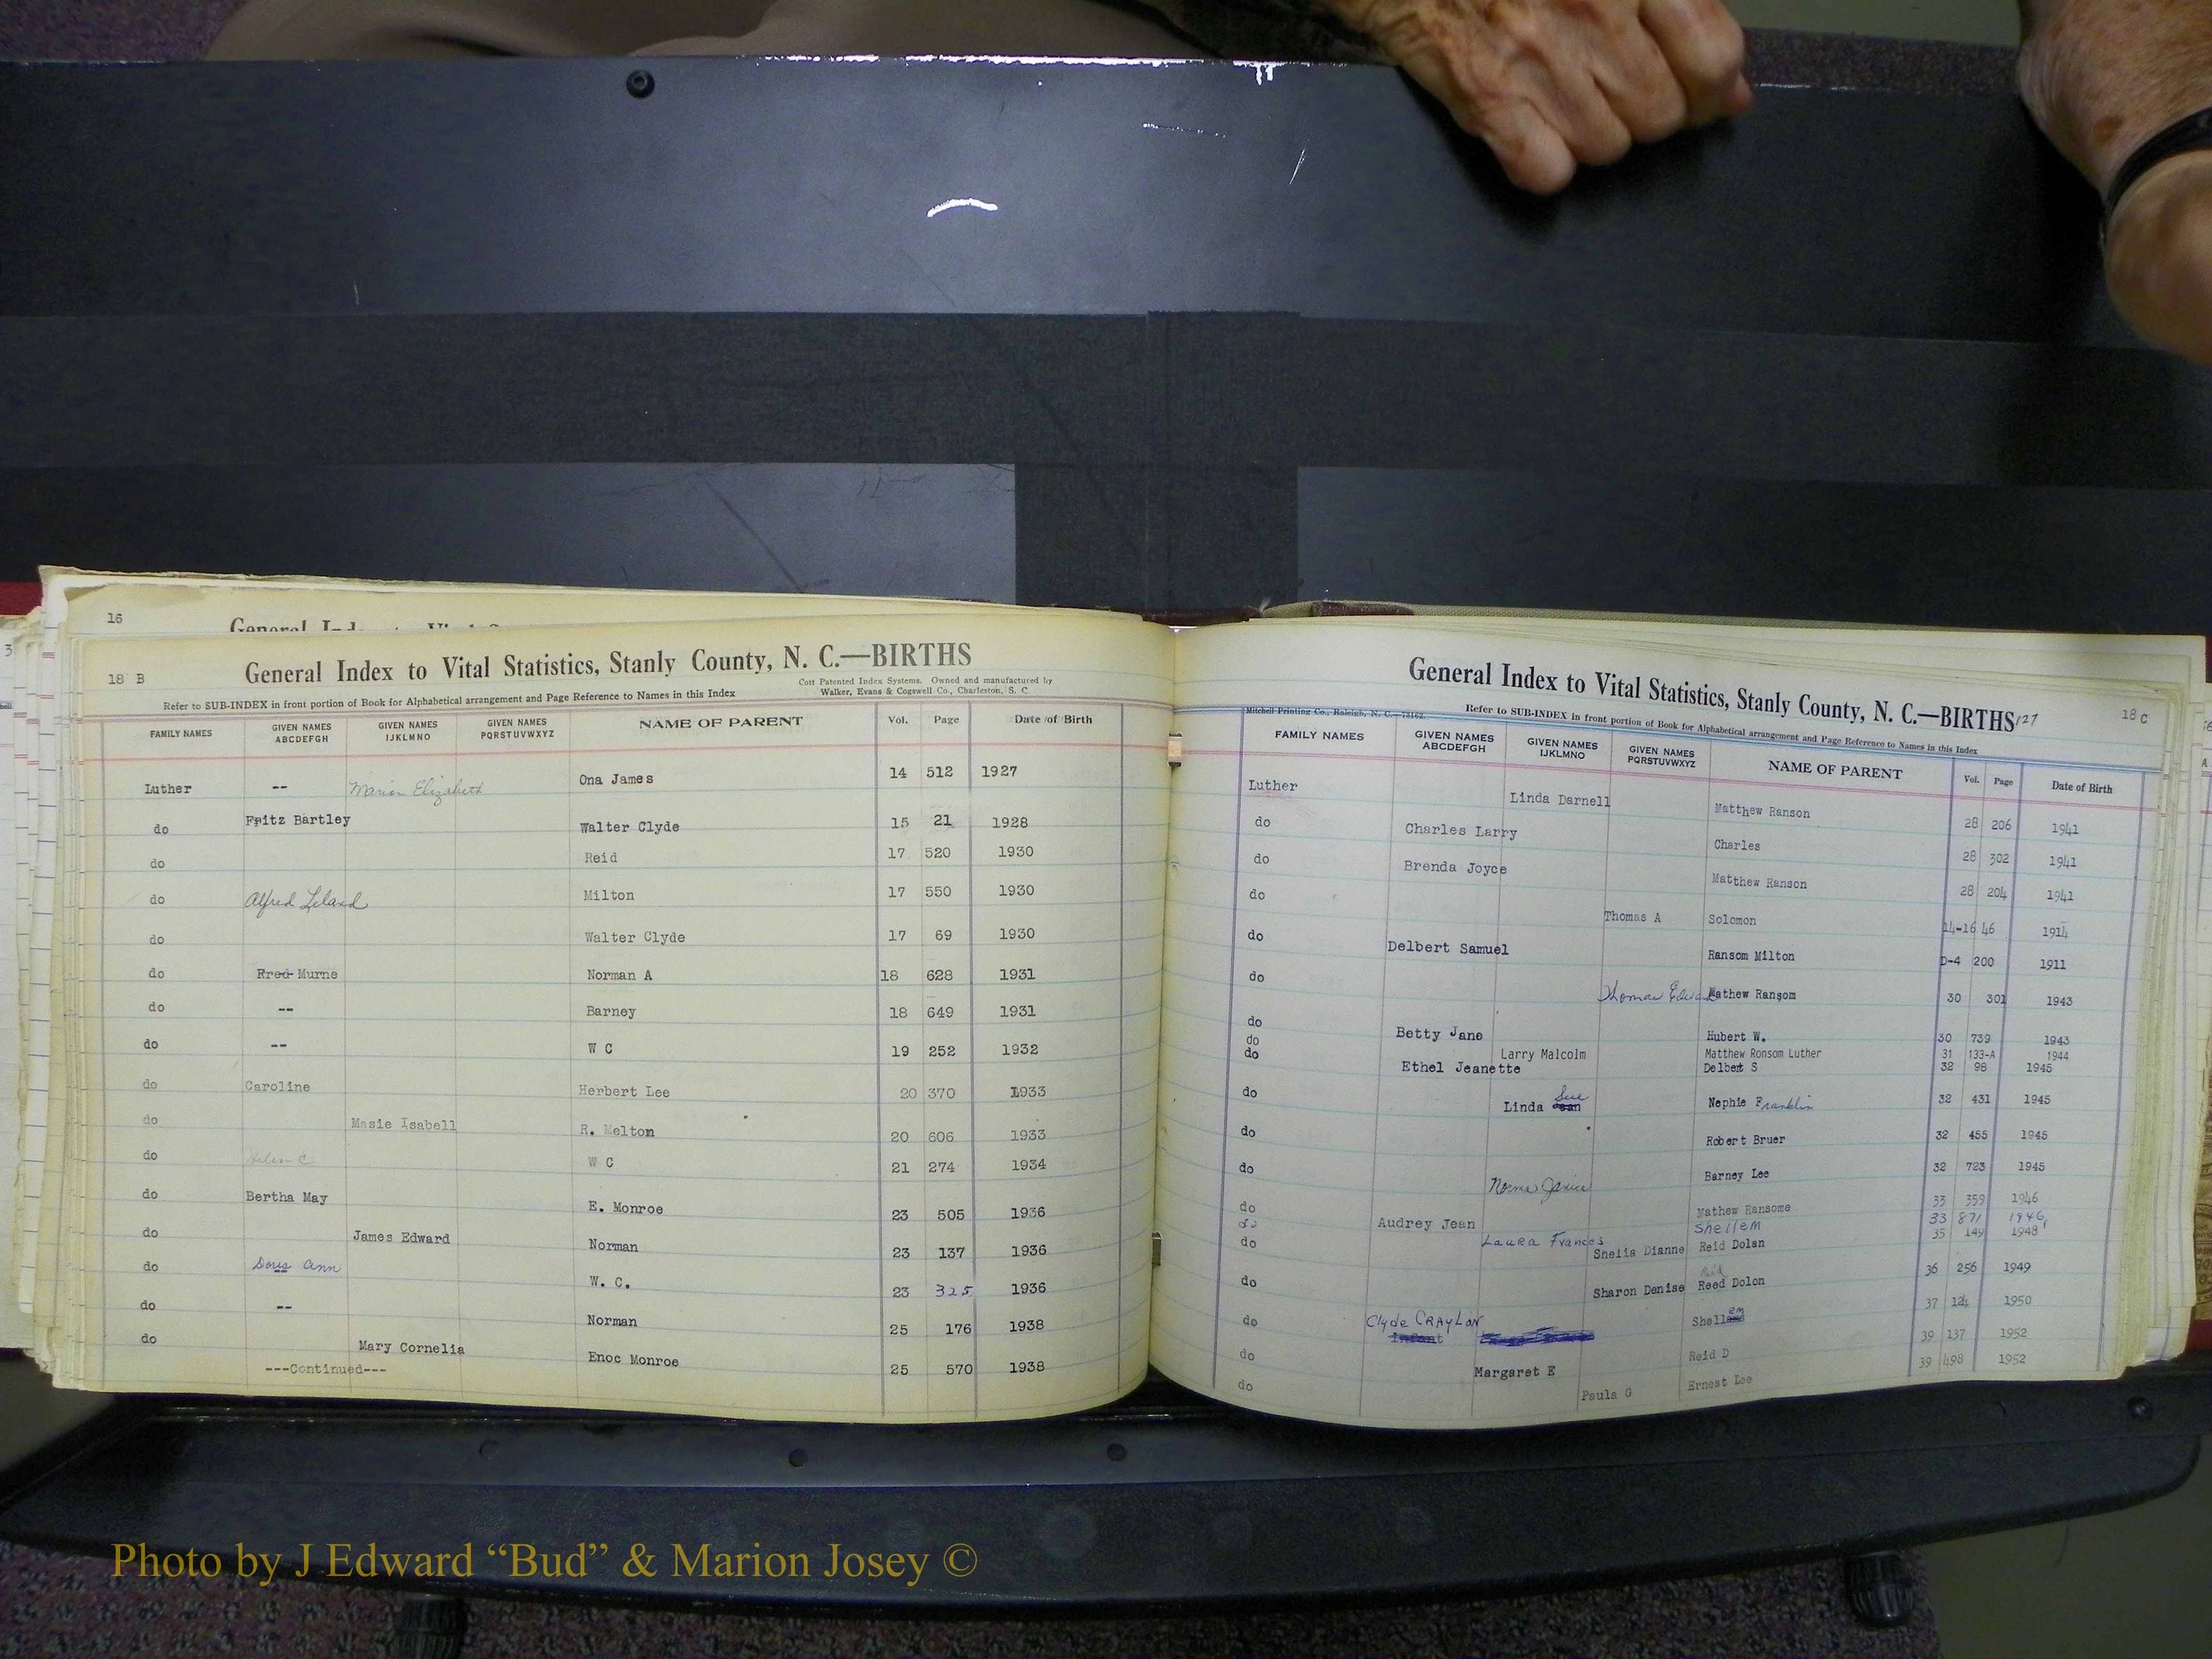 16
General Index to Vital S
18 B
General Index to Vital Statistics, Stanly County, N. C.—BIRTHS
Cott Patented Index Systems. Owned and manufactured by
Walker, Evans & Cogswell Co., Charleston, S. C.
Refer to SUB-INDEX in front portion of Book for Alphabetical arrangement and Page Reference to Names in this Index
FAMILY NAMES GIVEN NAMES ABCDEFGH GIVEN NAMES IJKLMNO GIVEN NAMES PQRSTUVWXYZ NAME OF PARENT Vol. Page Date of Birth
Luther -- Marion Elizabeth Ona James 14 512 1927
do Fritz Bartley Walter Clyde 15 21 1928
do Reid 17 520 1930
do Alfred Leland Milton 17 550 1930
do Walter Clyde 17 69 1930
do Fred Murne Norman A 18 628 1931
do -- Barney 18 649 1931
do -- W C 19 252 1932
do Caroline Herbert Lee 20 370 1933
do Masie Isabell R. Melton 20 606 1933
do Helen C W C 21 274 1934
do Bertha May E. Monroe 23 505 1936
do James Edward Norman 23 137 1936
do Doris Ann W. C. 23 325 1936
do -- Norman 25 176 1938
do Mary Cornelia Enoc Monroe 25 570 1938
---Continued---
General Index to Vital Statistics, Stanly County, N. C.—BIRTHS 127
18 C
Mitchell Printing Co., Raleigh, N. C.
Refer to SUB-INDEX in front portion of Book for Alphabetical arrangement and Page Reference to Names in this Index
FAMILY NAMES GIVEN NAMES ABCDEFGH GIVEN NAMES IJKLMNO GIVEN NAMES PQRSTUVWXYZ NAME OF PARENT Vol. Page Date of Birth
Luther Linda Darnell Matthew Ranson 28 206 1941
do Charles Larry Charles 28 302 1941
do Brenda Joyce Matthew Ranson 28 204 1941
do Thomas A Solomon 14-16 46 1914
do Delbert Samuel Ransom Milton D-4 200 1911
do Thomas Edward Mathew Ransom 30 301 1943
do Betty Jane Hubert W. 30 739 1943
do Larry Malcolm Matthew Ronsom Luther 31 133-A 1944
do Ethel Jeanette Delbert S 32 98 1945
do Linda Jean Sue Nephie Franklin 32 431 1945
do Robert Bruer 32 455 1945
do Norma Janice Barney Lee 32 723 1945
do Audrey Jean Mathew Ransome 33 359 1946
do Laura Frances Shellem 33 871 1946
do Shelia Dianne Reid Dolan 35 149 1948
do Sharon Denise Reed Reid Dolon 36 256 1949
do Clyde CRAYLON Infant Shellem 37 124 1950
do Margaret E Reid D 39 137 1952
do Paula G Ernest Lee 39 498 1952
Photo by J Edward “Bud” & Marion Josey ©